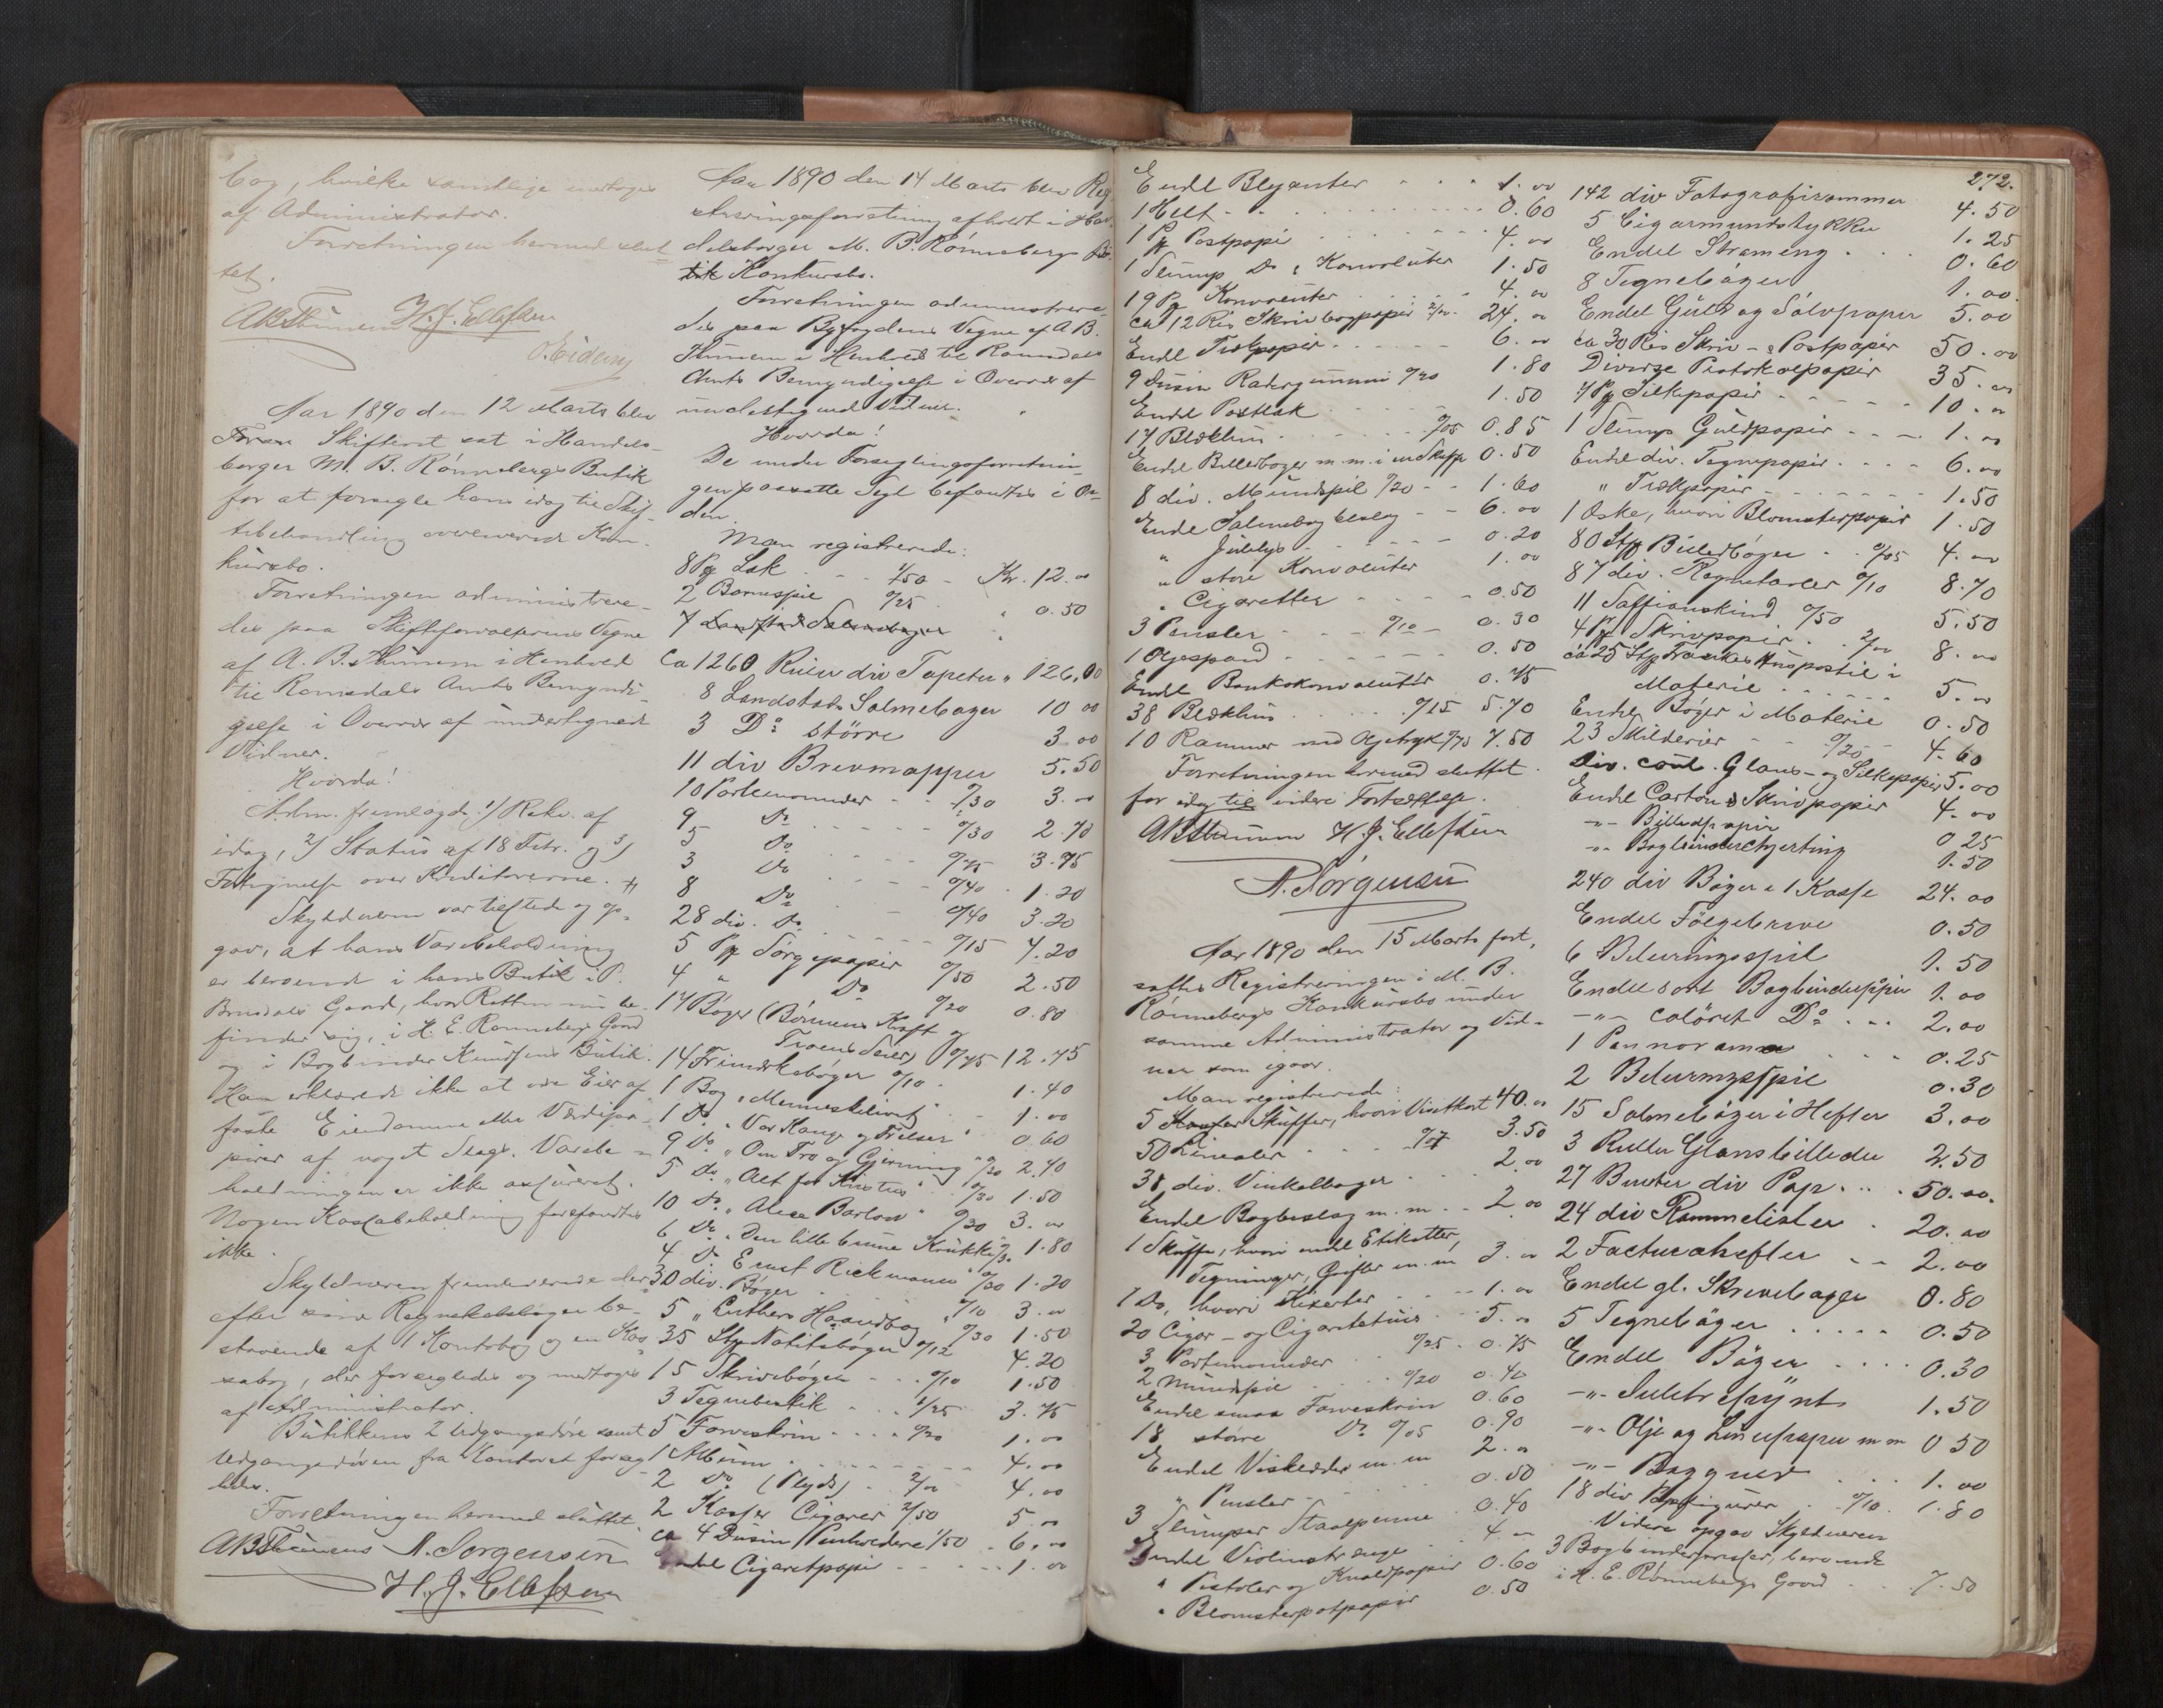 bog, hvilke samtlige modtoges
af Administrator.
Forretningen hermed slut
tet.
ABThünem H. J. Ellefsen
O. Eideny
Aar 1890 den 12 Marts blev
Skifteret sat i Handels-
borger M. B. Rönnebergs Butik
for at forsegle hans idag til Skif-
tebehandling overleverede Kon-
kursbo.
Forretningen administrere-
des paa Skifteforvalterens Vegne
af A. B. Thünem i Henhold
til Romsdals Amts Bemyndi-
gelse i Overvær af undertegnede
Vidner.
Hvorda!
Adm. fremlagde 1/ Rekv. af
idag, 2/ Status af 18 Febr. og 3/
Fortegnelse over Kreditorerne.
Skyldneren var tilstede og op-
gav, at hans Varebeholdning
er beroende i hans Butik i P.
Brusdals Gaard, hvor Retten nu be-
finder sig, i H. E. Rønnebergs Gaard
og i Bogbinder Knudsens Butik.
Han erklærede ikke at være Eier af
faste Eiendomme eller Værdipa-
pirer af noget Slags. Varebe-
holdningen er ikke assureret.
Nogen Kassabeholdning forefandtes
ikke.
Skyldneren fremleverede der-
efter sine Regnskabsbøger be-
staaende af 1 Kontobog og en Kas-
sabog, der forsegledes og modtoges
af Administrator.
Butikkens 2 Udgangsdøre samt
Udgangsdøren fra Kontoret forseg
ledes.
Forretningen hermed sluttet.
ABThünem N. Sorgensen
H. J. Ellefsen
Aar 1890 den 14 Marts blev Reg
istreringsforretning afholdt i Han-
delsborger M. B. Rönnebergs
Konkursbo.
Forretningen administrere-
des paa Byfogdens Vegne af A B.
Thünem i Henhold til Romsdals
Amts Bemyndigelse i Overvær af
undertegnede Vidner.
Hvorda!
De under Forseglingsforretnin-
gen paasatte Segl befandtes i Or-
den
Man registrerede:
8 Pg Lak 1/50 - Kr. 12. 00
2 Børnespil 0/25 " 0.50
7 Landstads Salmebøger "
Ca 1260 Ruller div Tapeter " 126.00
8 Landstads Salmebøger 10 00
3 Do större 3 00
11 div Brevmapper 5.50
10 Portemonnæer 0/30 3. 00
9 Do 0/30 2.70
5 Do 0/75 3.75
3 Do 0/40 1.20
8 Do 0/40 3.20
28 div. Do 0/15 4.20
5 Pg Sörgepapir 0/50 2.50
4 " Do 0/20 0.80
17 Bøger (Børnenes Kraft og
Troens Seier) 0/75 12.75
14 Frimærkebøger 0/10 1.40
1 Bog "Menneskelivet" 1. 00
1 Do "Vor Kamp og Frelser" 0.60
9 Do "Om Tro og Gjerning" 0/30 2.70
5 Do "Alt for Kristus" 0/30 1.50
10 Do "Alice Barlow" 0/30 3. 00
6 Do "Den lille brune Krukke" 0/30 1.80
4 Do Ernst Rickmann" 0/30 1.20
30 div. Bøger 0/10 3. 00
5 "Luthers Haandbog" 0/30 1.50
35 Stkr Notitsbøger 0/12 4.20
15 Skrivebøger 0/10 1.50
3 Tegnebestik 1/25 3.75
5 Farveskrin 0/20 1. 00
1 Album 4. 00
2 Do (Plyds) 2/00 4. 00
2 Kasser Cigarer 2/50 5. 00
ca 4 Dusin Penholdere 1/50 6. 00
Endel Cigaretpapir 1. 00
272.
Endel Blyanter 1. 00
1 Helt 0.60
1 Pg Postpapir 4. 00
1 Slump Do & Konvoluter 1.50
19 Pg Konvoluter 4. 00
ca 12 Ris Skrivbogpapir 2/00 24. 00
Endel Trækpapir 6. 00
9 Dusin Radergummi 0/20 1.80
Endel Postlak 1.50
17 Blækhus 0/05 0.85
Endel Billedbøger m.m. i en Skuffe 0.50
8 div. Mundspil 0/20 1.60
Endel Salmebogbeslag 6. 00
" Julelys 0.20
" store Konvoluter 1. 00
" Cigaretter 0.50
3 Pensler 0/10 0.30
1 Oljespand 0.50
Endel Bankokonvoluter 0.75
38 Blækhus 0/15 5.70
10 Rammer med Oljetryk 0/75 7.50
Forretningen hermed sluttet
for idag til videre Fortsættelse.
ABThünem H. J. Ellefsen
N. Sorgensen
Aar 1890 den 15 Marts fort-
sattes Registreringen i M. B.
Rönnebergs Konkursbo under
samme Administrator og Vid-
ner som igaar.
Man registrerede:
5 Skuffer, hvori Visitkort 40. 00
50 Linealer 0/07 3.50
38 div. Vinkelbager 2. 00
Endel Bogbeslag m.m. 2 00
1 Skuffe, hvori endel Etiketter,
Tegninger, Grifler m.m 3. 00
1 Do, hvori 1. 00
20 Cigar- og Cigaretetuis 5. 00
3 Portemonnæer 0/25 0.75
2 Mundspil 0/20 0.40
Endel smaa Farveskrin 0.60
18 större Do 0/05 0.90
Endel Viskelæder m.m 2. 00
" Pensler 0.50
3 Slumper Staalpenne 0.40
Endel Violinstrænge 4. 00
" Pistoler og Knaldpapir 0.60
" Blomsterpotpapir 0.50
142 div Fotografirammer 4.50
5 Cigarmundstykker 1.25
Endel Strameng 0.60
8 Tegnebøger 1. 00.
Endel Guld og Sölvpapir 5. 00
ca 30 Ris Skriv- & Postpapir 50. 00
Diverse Protokolpapir 35. 00
7 Pg Silkepapir 10. 00
1 Slump Guldpapir 1. 00
Endel div. Tegnepapir 6. 00
" Trækpapir 1.50
1 Æske, hvori Blomsterpapir 1.50
80 Stkr Billedbøger 0/05 4. 00
87 div. Regnetavler 0/10 8.70
11 Saffianskind 0/50 5.50
4 Pg Skrivpapir 2/00 8. 00
ca 25 Stkr Frankes Huspostil i
Materie 5. 00
Endel Bøger i Materie 0.50
23 Skilderier 0/20 4.60
Div. coul. Glans- og Silkepapir 5.00
Endel Carton & Skrivpapir 4. 00
-"- Billedpapir 0 25
-"- Bogbinderchjerting 1.50
240 div Bøger i 1 Kasse 24. 00
Endel Följebreve 0.50
6 Beleiringsspil 1.50
Endel sort Bogbinderppir 1. 00
-"- colöret Do 2. 00
1 Pannorama 0.25
2 Beleiringsspil 0.30
15 Salmebøger i Hefter 3. 00
3 Ruller Glansbilleder 2.50
27 Bunter div Pap 50. 00.
24 div Rammelister 20. 00
2 Facturahefter 2. 00
Endel gl. Skrivebøger 0.80
5 Tegnebøger 0.50
Endel Bøger 0.30
-"- Juletrepynt 1.50
-"- Olje og Linepapir m m 0 50
-"- Baggner 1. 00
18 div Papfigurer 0/10 1.80
Videre opgav Skyldneren
3 Bogbinderpresser, beroende
i H. E. Rønnebergs Gaard 7.50